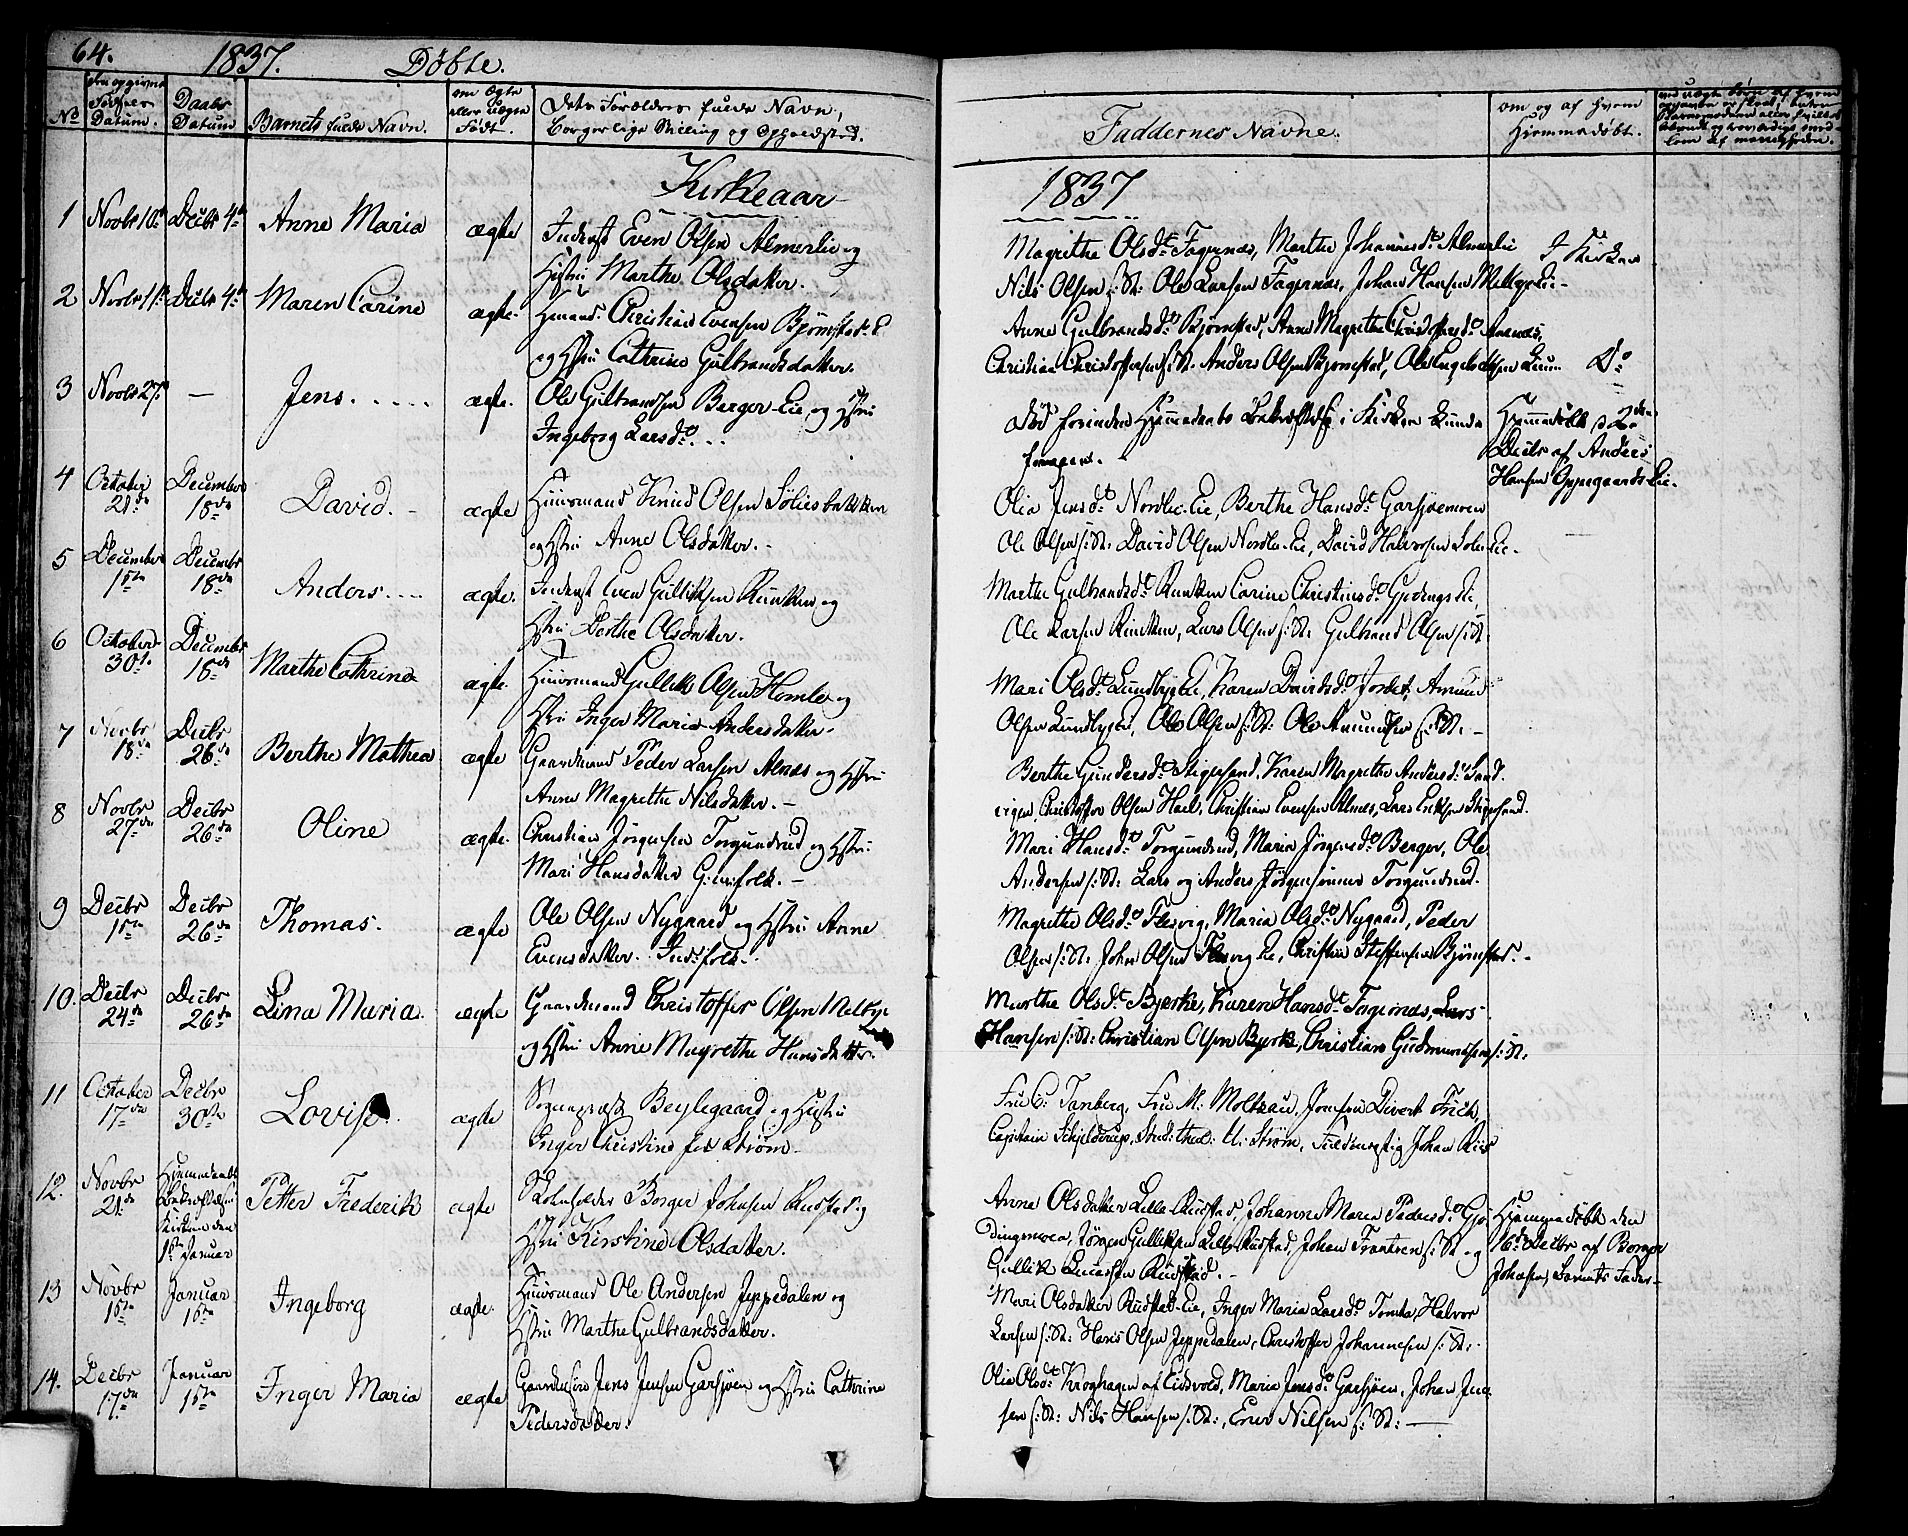 64. 1837. Döbte.
No
Daabs Datum
Barnets fulde Navn.
om Ægte eller uægte Födt.
Deres Forældres fulde Navn,
borgerlige Stilling og Opholdsted.
Faddernes Navne.
om og af hvem
Hjemmedøbt.
Kirkeaar 1837
1 Novbr 10de Decbr 4de Anne Maria ægte Inderst Even Olsen Almerlie og
Hustru Marthe Olsdatter.
Magrethe Olsdt Fagernæs, Marthe Johannesdt Almerlie I Kirken
Nils Olsen s: St: Ole Larsen Fagernæs, Johan Hansen Melbye Eie.-
2 Novbr 11te Decbr 4de Maren Carine ægte. Hmand Christian Evensen Björnstad E.
og Hstru Cathrine Gulbrandsdatter.
Anne Gulbrandsdr Björnstad, Anne Magrethe Christophersdr
Christian Christophersen s: St. Anders Olsen Bjørnstad, Ole Engebretsen Do
3 Novbr 27de — Jens. ægte. Ole Gulbrandsen Berger Eie, og Hstru
Ingeborg Larsdr.
død forinden Hjemmedaabs Bekræftelse i Kirken kunde
foregaae.
Hjemmedöbt d. 2den
Decbr af Anders
Hansen Oppegaards Eie.
4 October 21de December 18de David. ægte Huusmand Knud Olsen Soliesbakken
og Hstru Anne Olsdatter.-
Olia Jensdt Nordlie Eie, Berthe Hansdt Garsjøemoen
Ole Olsen s: St: David Olsen Nordlie Eie, David Halvorsen Solie Eie.
5 December 1ste Decembr 18de Anders ægte. Inderst Even Gulliksen Runken og
Hstru Berthe Olsdatter.
Marthe Gulbrandsdt Runken Carine Christiansdr Gjødings Eie,
Ole Larsen Runken, Lars Olsen s: St: Gulbrand Olsen s: St:
6 October 30te Decembr 18de Marthe Cathrine ægte. Huusmand Gullik Olsen Homle og
Hstru Inger Maria Andersdatter.
Mari Olsdt Lundbye Eie, Karen Davidsdr Jordet, Amund
Olsen Lundbye E, Ole Olsen s: St: Ole Amundsen s: St: -
7 Novbr 18de Decbr 26de Berthe Mathea ægte Gaardmand Peder Larsen Alnæs og Hstru
Anne Magrethe Nilsdatter.-
Berthe Gundersdt Stigersand, Karen Magrethe Andersdr Sand.
Christoffer Olsen Hael, Christian Evensen Alnæs, Lars Eriksen Stigersand.
8 Novbr 27de Decbr 26de Oline ægte. Christian Jörgensen Torgundrud og Hstru
Mari Hansdatter Gmfolk.-
Mari Hansdt Torgundrud, Maria Jörgensdr Berger, Ole
Andersen s: St: Lars og Anders Jørgensönner Torgundrud.
9 Decbr 1ste Decbr 26de Thomas. ægte Ole Olsen Nygaard og Hstru Anne
Evensdatter. Inds:folk.
Magrethe Olsdr Flesvig, Maria Olsdr Nygaard, Peder
Olsen s: St. John Olsen Flesvig Eie, Christian Steffensen Bjørnstad.-
10. Decbr 24de Decbr 26de Lina Maria. ægte Gaardmand Christoffer Olsen Melbye
og Hstru Anne Magrethe Hansdatter.
Marthe Olsdt Bjerke, Karen Hansdt Fagernæs, Lars
Hansen s: St: Christian Olsen Bjerke, Christian Gudmundsen s: St:
11 October 17de Decbr 30te Lovise. ægte Sogneprest Beylegaard og Hustru
Inger Christine fød Ström.
Fru C: Tanberg, Fru M: Moltzau, Jomfru Divert Frich,
Capitain Schjelderup, Stud: theol: U: Ström, Johan Riis
12. Novbr 21de Hjemmedaabs Bekræftelse i Kirken den 1ste Januar Petter Frederik ægte Skoleholder Borger Johnsen Rudstad og
Hstru Kirstine Olsdatter.
Anne Olsdatter Lille Rudstad, Johanne Maria Pedersdr Gjö-
dingmoen, Jørgen Gulliksen Lille Rudstad, Johan Frantzen s: St og
Gullik Rudstad.-
Hjemmedöbt den
16de Decbr af Borger
Johnsen, Barnets Fader-
13 Novbr 16de Januar 15de Ingeborg ægte. Huusmand Ole Andersen Jeppedalen og
Hstru Marthe Gulbrandsdatter.
Mari Olsdatter Rudstad Eie, Inger Maria Larsdt Tomta, Halvor
Larsen s: St: Hans Olsen Jeppedalen, Christoffer Johannesen s: St:.
14. Decbr 17de Januar 15de Inger Maria ægte Gaardmand Jens Jensen Garsjøen og Hstru Cathrine
Pedersdatter.
Olia Olsdt Kroghagen af Eidsvold, Maria Jensdr Garsjøen, Johan Jen-
sen s: St: Nils Hansen s: St:, Even Nilsen s: St: —